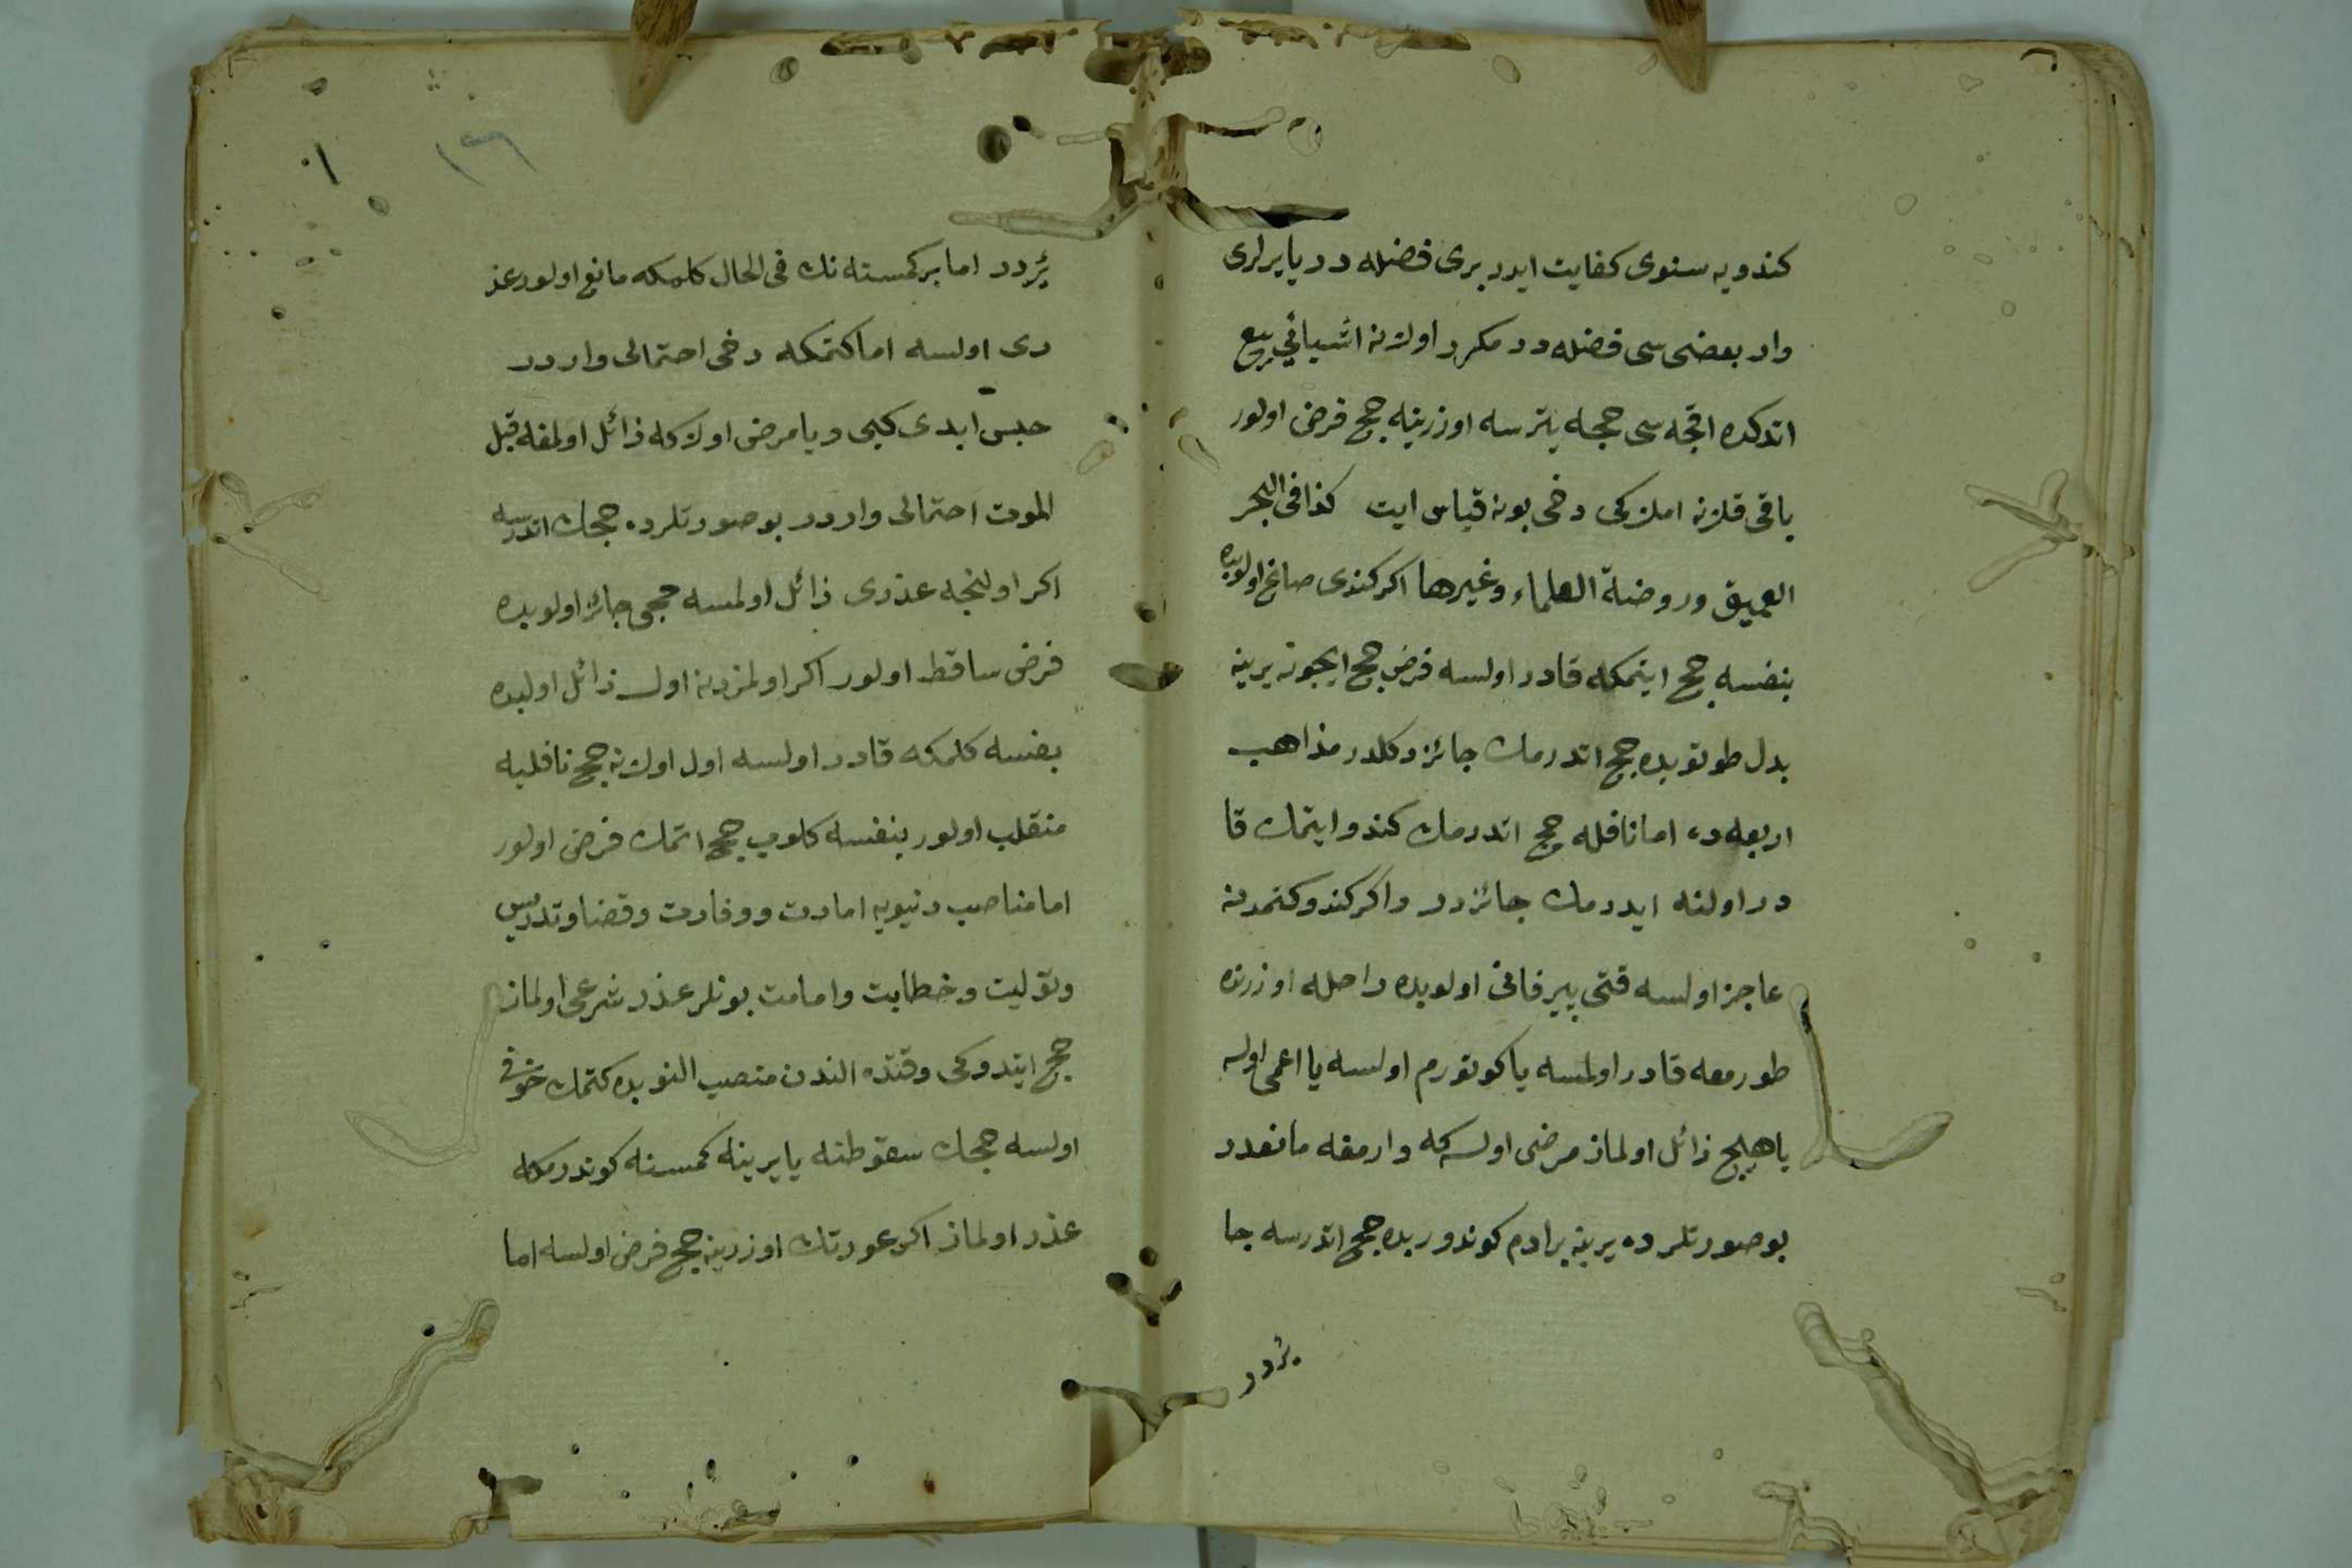 كندويه سنوى كفايت ايدر برى فضله در يا يرلرى
وار بعضى سى فضله در مكرر اولان اشيائي بيع
اتدكده اقچه سى حجه يترسه اوزرينه حج فرض اولور
باقى قلان املاكى دخى بونه قياس ايت كذا فى البحر
العميق وروضة العلماء وغيرها اكر كندى صاغ اولوبده
بنفسه حج ايتمكه قادر اولسه فرض حج ايچون يرينه
بدل طوتوبده حج اتدرمك جائز دكلدر مذاهب
اربعه ده اما نافله حج اتدرمك كندو ايتمك قا
در اولنه ايدرمك جائزدر واكر كندو كتمدن
عاجز اولسه قتى پير فانى اولوبده راحله اوزرنده
طورمغه قادر اولمسه يا كوتورم اولسه يا اعمى اولسه
يا هيچ زائل اولماز مرضى اولسه كه وارمغه مانعدر
بوصورتلرده يرينه برادم كوندوربده حج اتدرسه جا
ئزدر
١٦
ئزدر اما بر كمسنه نك فى الحال كلمكه مانع اولور عذ
رى اولسه اما كتمكه دخى احتمالى واردر
حبس ابدى كبى ويا مرض اولا كه زائل اولمغه قبل
الموت احتمالى واردر بوصورتلرده حجك اتدرسه
اكر اولنجه عذرى زائل اولمسه حجى جائز اولوبده
فرض ساقط اولور اكر اولمزدن اول زائل اولبده
بنفسه كلمكه قادر اولسه اول اولان حج نافليه
منقلب اولور بنفسه كلوب حج اتمك فرض اولور
اما مناصب دنيويه امارت ووزارت وقضا وتدريس
وتوليت وخطابت وامامت بونلر عذر شرعى اولماز
حج ايتدوكى وقتده الندن منصب النوبده كتمك خوفى
اولسه حجك سقوطنه يا يرينه كمسنه كوندرمكه
عذر اولماز اكر عورتك اوزرينه حج فرض اولسه اما